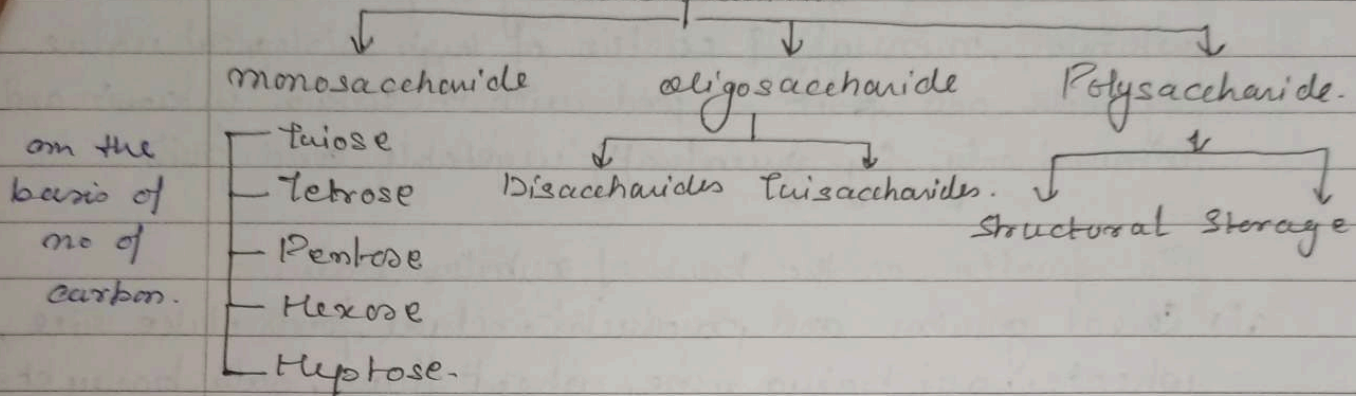 monosaccharide oligosaccharide Polysaccharide.
on the
basis of
no of
carbon.
Triose
Tetrose
Pentose
Hexose
Heptose.
Disaccharides Trisaccharides.
Structural Storage